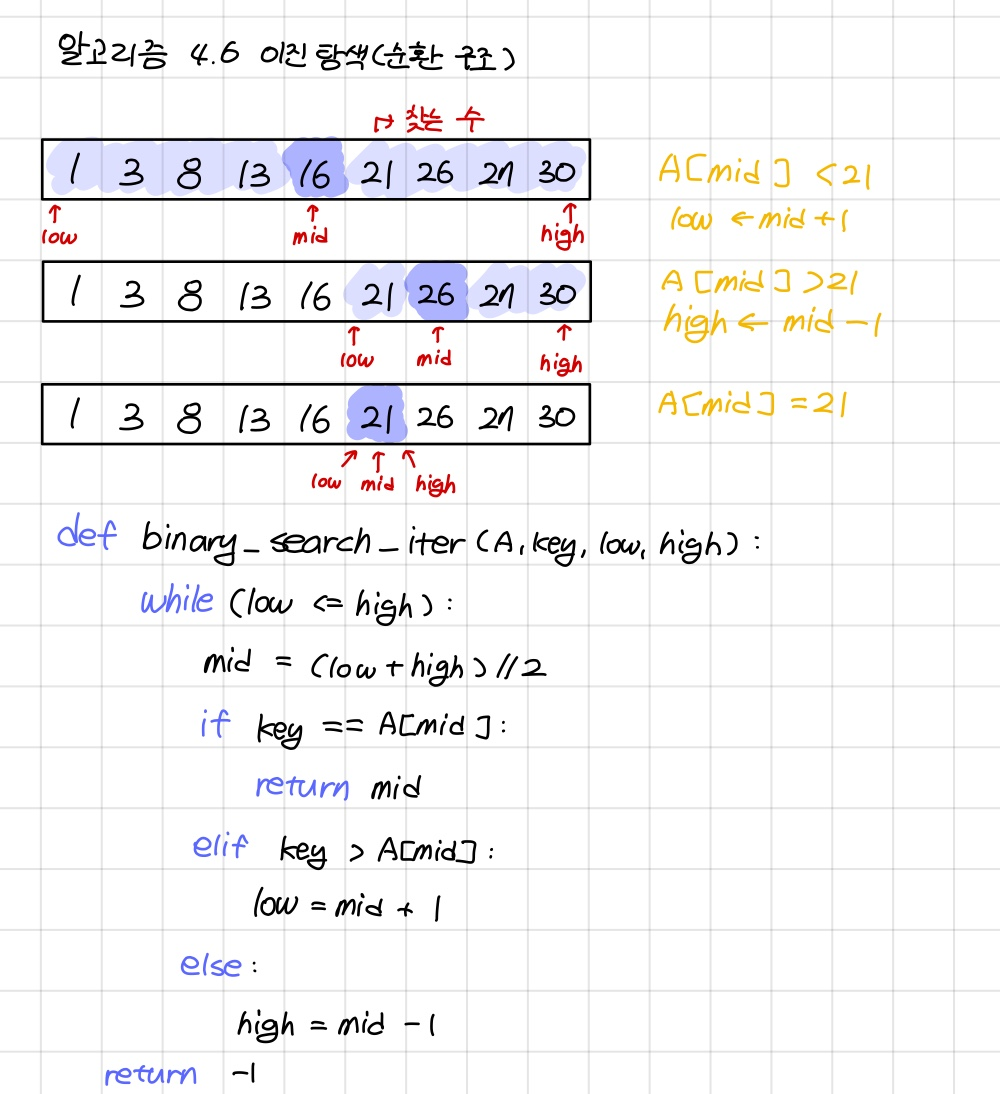 알고리즘 4.6 이진 탐색(순환 구조)
↦ 찾는 수
1 3 8 13 16 21 26 27 30
A[mid] < 21
low ← mid + 1
↑ ↑ ↑
low mid high
1 3 8 13 16 21 26 27 30
A[mid] > 21
high ← mid - 1
↑ ↑ ↑
low mid high
1 3 8 13 16 21 26 27 30
A[mid] = 21
↗ ↑ ↖
low mid high
def binary_search_iter(A, key, low, high) :
while (low <= high) :
mid = (low + high) // 2
if key == A[mid] :
return mid
elif key > A[mid] :
low = mid + 1
else :
high = mid - 1
return -1